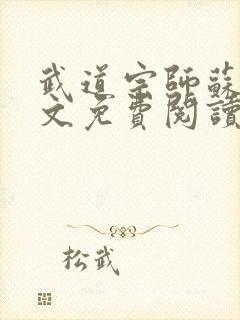 武道宗師蘇
文免費閱讀
松武